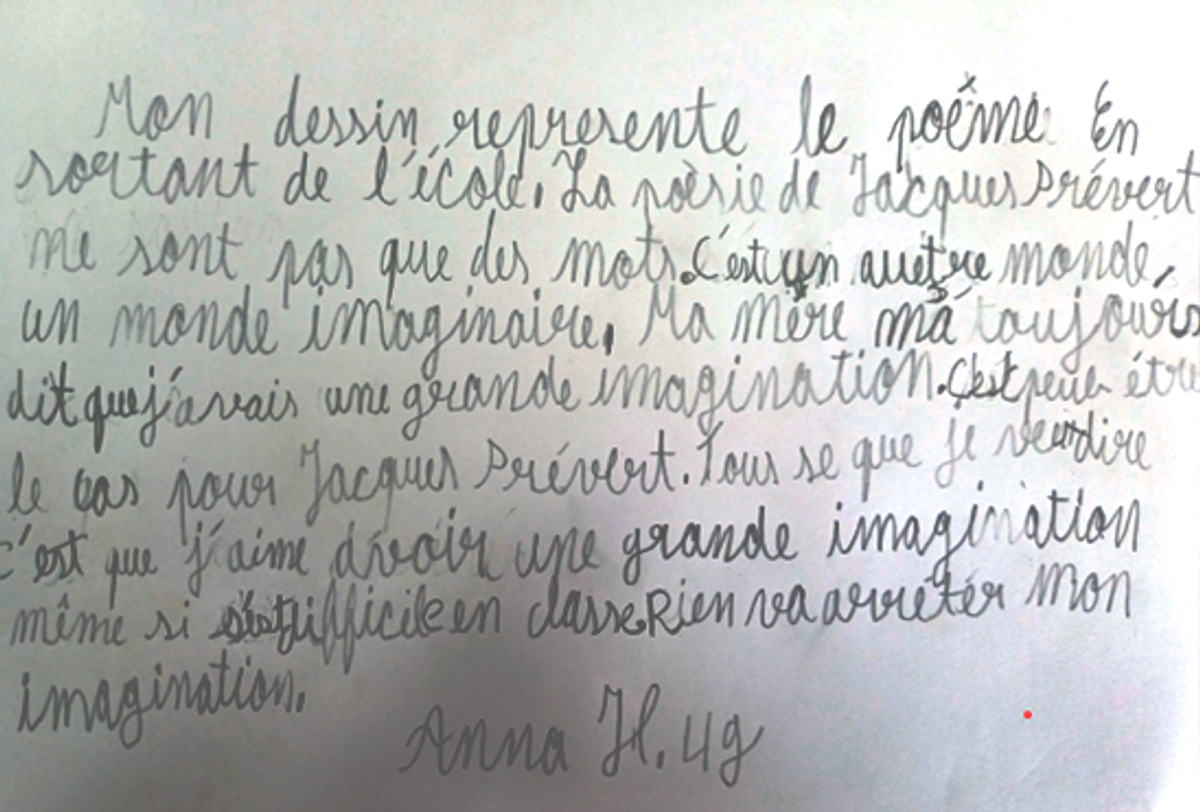 Mon dessin represente le poême En
sortant de l'école. La poèsie de Jacques Prévert
me sont pas que des mots. C'est un auetre monde,
un monde imaginaire. Ma mère má toujours
dit que j'avais une grande imagination. C'est peux être
le cas pour Jacques Prévert. Tous se que je veux dire
c'est que j'aime avoir une grande imagination
même si s'est difficile en classe Rien va arrêter mon
imagination.
Anna H. 4g